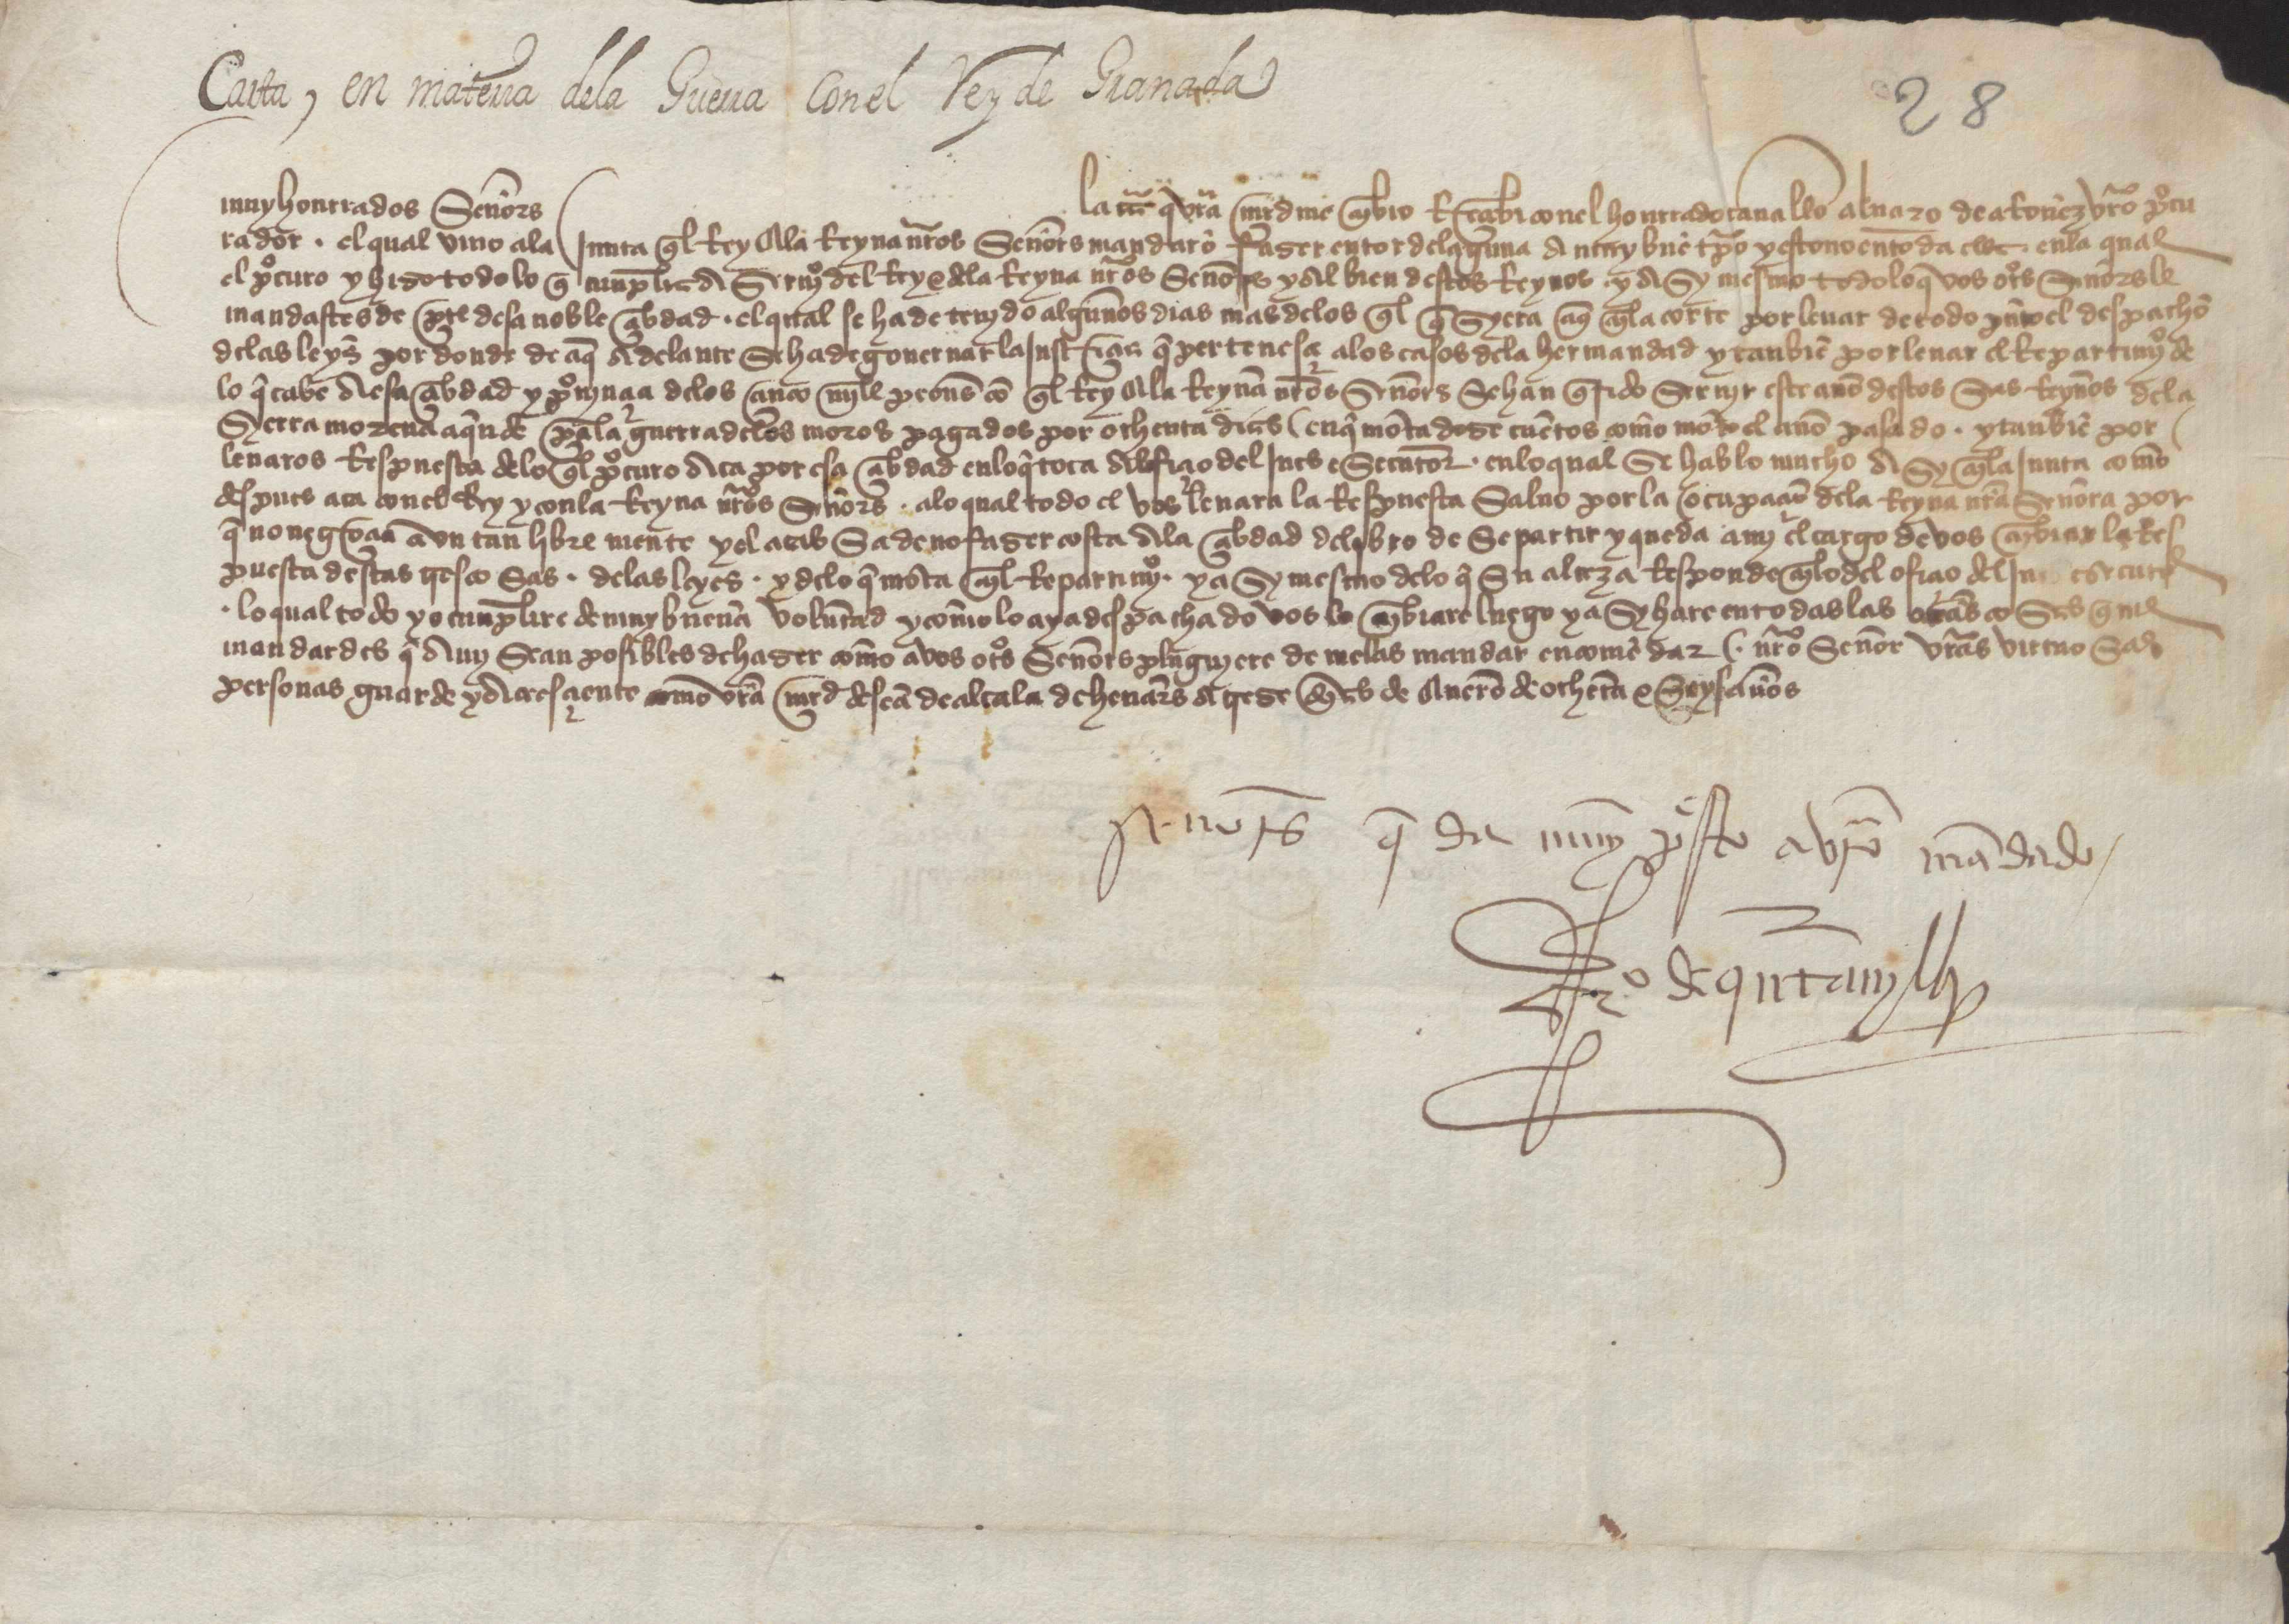 Carta, en materia dela Guerra con el Rey de Granada
28
muy honrrados Señors
la q vra mrd me enbio Reçebi con el honrrado cavallo alvaro de vro procu
rador . el qual vino ala Junta ql Rey e la Reyna nros Señors mandarō fazer en tordelaguna a muy buē tpo y estovo en toda ella en la qual
el procuro y hizo todo lo q cunplia a Servyo del Rey e dela Reyna nros Señores y al bien destos Reynos y a Sy mesmo todo lo q vos otros Señors le
mandastes de pte desa noble çibdad . el qual se ha detenydo algunos dias mas delos ql qsyera aq enla corte por levar de todo punto el despacho
delas leyes por donde de aq adelante Se ha de governar la Justiçia q perteneçe alos casos dela hermandad y tanbiē por levar el Repartimyo de
lo q cabe a esa çibdad y provynçia delos çinco myll peones q el Rey e la Reyna nros Señors Se han qrido Servyr este año destos Sus Reynos dela
Syerra morena aquende pa la guerra delos moros pagados por ochenta dias en q mōta doze cuentos como mōto el año pasado . y tanbiē por
levaros Respuesta delo ql procuro aca por esa çibdad en lo q toca al ofiçio del Jues esecutor . en lo qual Se hablo mucho a Sy enla Junta como
despues aca con el Rey y con la Reyna nros Señors . alo qual todo el vos levara la Respuesta Salvo por la ocupaçiō dela Reyna nra Señora por
q no negoçia avn tan libremente y el a cabsa de no fazer costa ala çibdad delibro de Se partir y queda a my el cargo de vos enbiar la Res
puesta destas tres cosas . delas leyes . y delo q mōta enl Repartimyo . y a Sy mesmo delo q Su alteza Responde enlo del ofiçio del Jues esecutor
. lo qual todo yo cunplire de muy buena voluntad y como lo aya despachado vos lo enbiare luego y a Sy hare en todas las otras cosas q me
mandardes q a my Sean posibles de hazer como a vos otros Señors pluguyere de me las mandar encomēdar . nro Señor vras virtuosas
personas guarde y acresçiente como vra mrd desea de alcala de henars a treze dias de enero de ochēta e Seys años
señors q da muy psto a vro mādado
de quintanylla